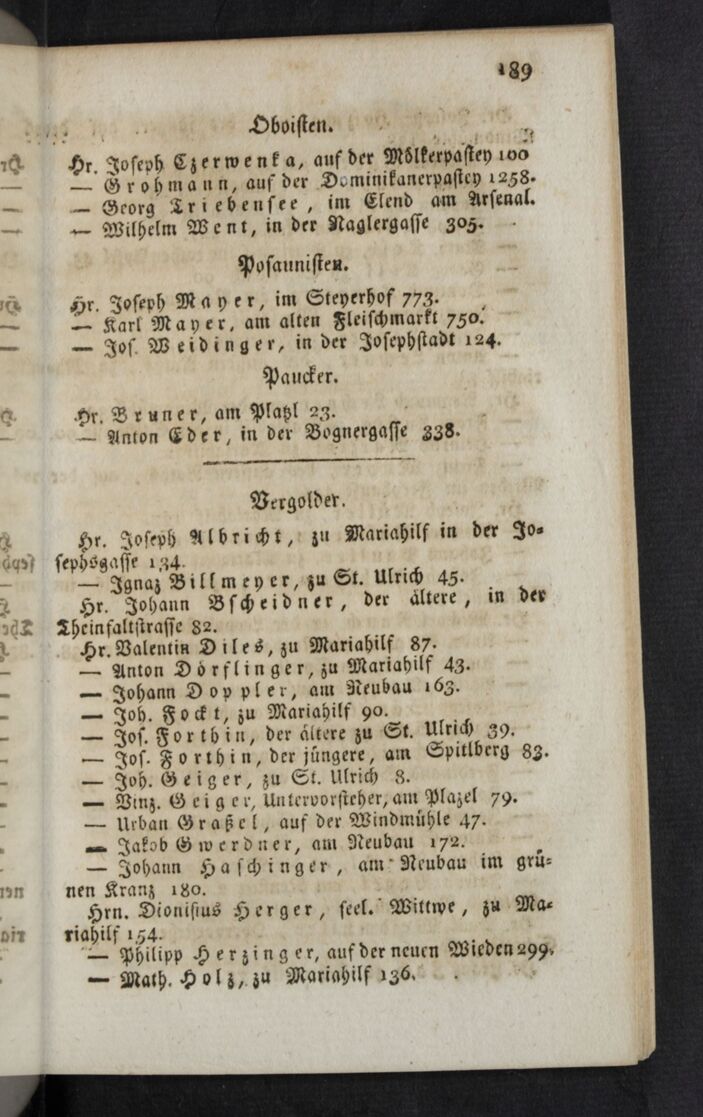 189
Oboisten.
Hr. Joseph Czerwenka, auf der Mölkerpastey 100
— Grohmann, auf der Dominikanerpastey 1258.
— Georg Triebensee, im Elend am Arsenal.
— Wilhelm Went, in der Naglergasse 305.
Posaunisten.
Hr. Joseph Mayer, im Steyerhof 773.
— Karl Mayer, am alten Fleischmarkt 750.
— Jos. Weidinger, in der Josephstadt 124.
Paucker.
Hr. Bruner, am Platzl 23.
— Anton Eder, in der Bognergasse 338.
Vergolder.
Hr. Joseph Albricht, zu Mariahilf in der Jo-
sephsgasse 134.
— Ignaz Billmeyer, zu St. Ulrich 45.
Hr. Johann Bscheidner, der ältere, in der
Theinfaltstrasse 82.
Hr. Valentin Diles, zu Mariahilf 87.
— Anton Dörflinger, zu Mariahilf 43.
— Johann Doppler, am Neubau 163.
— Joh. Fockt, zu Mariahilf 90.
— Jos. Forthin, der ältere zu St. Ulrich 39.
— Jos. Forthin, der jüngere, am Spitlberg 83.
— Joh. Geiger, zu St. Ulrich 8.
— Vinz. Geiger, Untervorsteher, am Plazel 79.
— Urban Graßel, auf der Windmühle 47.
— Jakob Gwerdner, am Neubau 172.
— Johann Haschinger, am Neubau im grü-
nen Kranz 180.
Hrn. Dionisius Herger, seel. Wittwe, zu Ma-
riahilf 154.
— Philipp Herzinger, auf der neuen Wieden 299.
— Math. Holz, zu Mariahilf 136.